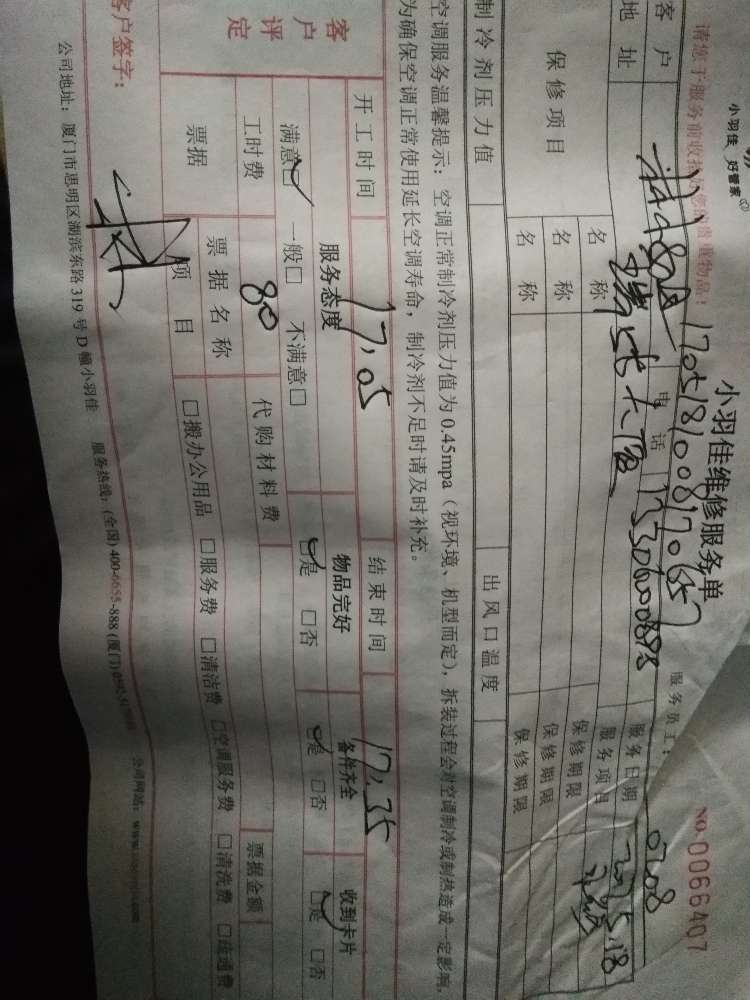 小羽佳 好管家
小羽佳维修服务单
NO. 0066407
请您于服务前收拾好您的贵重物品！
服务员工：0708
客户
电话
服务日期
地址
服务项目
保修项目
名称
保修期限
名称
保修期限
名称
保修期限
制冷剂压力值
出风口温度
空调服务温馨提示：空调正常制冷剂压力值为0.45mpa（视环境、机型而定），拆装过程会对空调制冷或制热造成一定影响，
为确保空调正常使用延长空调寿命，制冷剂不足时请及时补充。
开工时间 17:05 结束时间 17:35
客户评定
服务态度 物品完好 备件齐全 收到卡片
满意☑ 一般□ 不满意□ ☑是 □否 ☑是 □否 ☑是 □否
工时费 80 代购材料费
票据 票据名称 票据金额
项目 □搬办公用品 □服务费 □清洁费 □空调服务费 □清洗费 □疏通费
客户签字：
公司地址：厦门市思明区湖滨东路319号D幢小羽佳 服务热线：(全国)400-6655-888 (厦门)
公司网站：